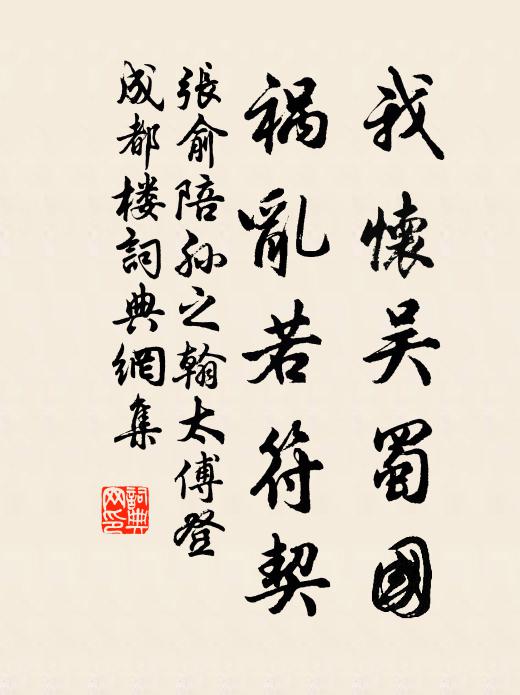 我懷吴蜀國
禍亂若符契
張俞陪孙之翰太傅登
成都楼詞典網集
詞典网印